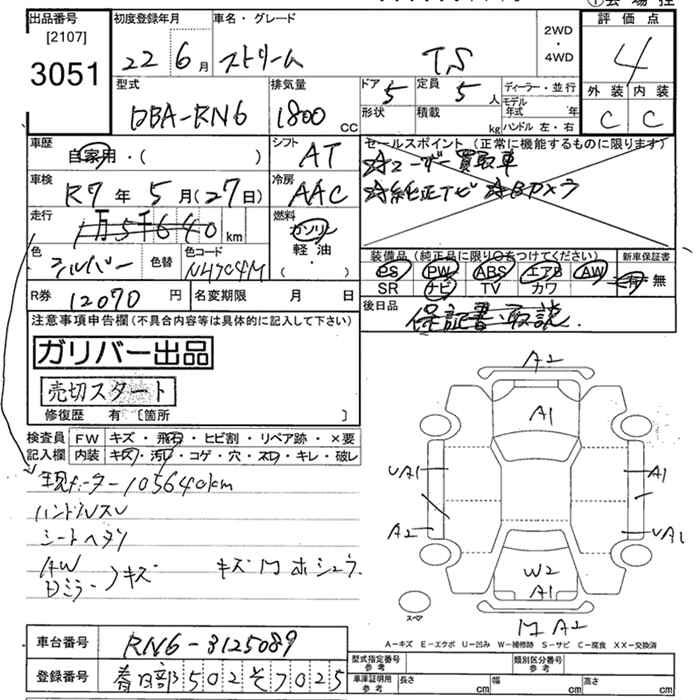 出品番号
[2107]
3051
初度登録年月
22 6月
車名・グレード
ストリーム TS
2WD
・
4WD
評価点
4
外装 内装
C C
型式
DBA-RN6
排気量
1800 CC
ドア 5
形状
定員 5 人
積載 kg
ディーラー・並行
モデル
年式 年
ハンドル 左・右
車歴
自家用・( )
シフト
AT
車検
R7年5月(27日)
冷房
AAC
走行
1万5千640 km
燃料
ガソリン
軽油
・( )
色
シルバー
色替
色コード
NH704M
R券 12070円
名変期限 月 日
セールスポイント(正常に機能するものに限ります)
☆ユーザー買取車
☆純正ナビ ☆Bカメラ
装備品(純正品に限り○をつけてください)
PS PW ABS エアB AW
SR ナビ TV カワ
新車保証書
有・無
後日品
保証書・取説
注意事項申告欄(不具合内容等は具体的に記入して下さい)
ガリバー出品
売切スタート
修復歴 有〔箇所 〕
検査員 FW キズ・飛石・ヒビ割・リペア跡・×要
記入欄 内装 キズ・汚レ・コゲ・穴・スレ・キレ・破レ
現メーター105640km
ハンドルスレ
シートヘタリ
AW
Dミラー キズ
A2
A1
UA1 A1
A2 UA1
W2
A1
スペア
A2
A-キズ E-エクボ U-凹み W-補修跡 S-サビ C-腐食 XX-交換済
車台番号 RN6-3125089
登録番号 春日部502そ7025
型式指定番号
参考
類別区分番号
参考
車庫証明用
参考
長さ cm 幅 cm 高さ cm